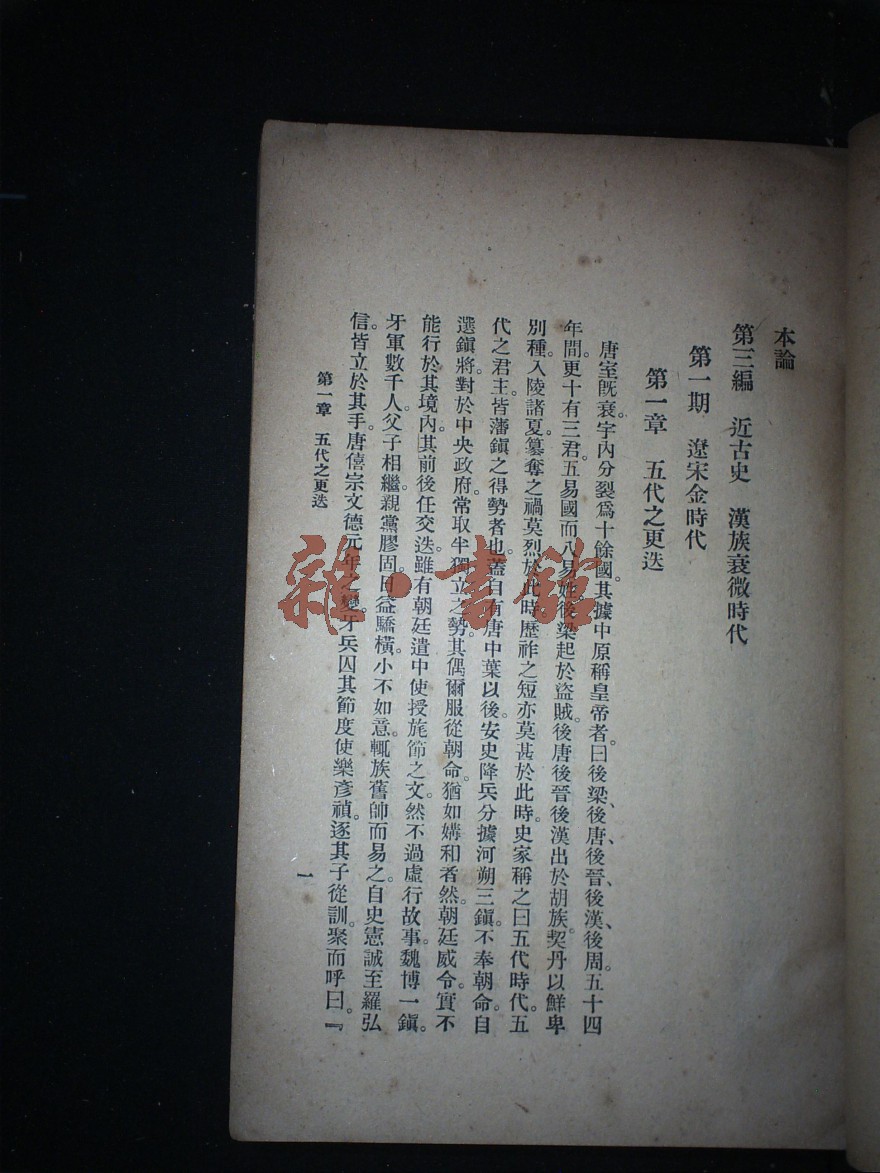 本論
第三編　近古史　漢族衰微時代
第一期　遼宋金時代
第一章　五代之更迭
唐室旣衰。宇內分裂爲十餘國。其據中原稱皇帝者。曰後梁、後唐、後晉、後漢、後周。五十四
年間。更十有三君。五易國而八易姓。後梁起於盜賊。後唐後晉後漢出於胡族。契丹以鮮卑
別種。入陵諸夏。簒奪之禍。莫烈於此時。歷祚之短。亦莫甚於此時。史家稱之曰五代時代。五
代之君主。皆藩鎭之得勢者也。蓋自有唐中葉以後。安史降兵。分據河朔三鎭。不奉朝命。自
選鎭將。對於中央政府。常取半獨立之勢。其偶爾服從朝命。猶如媾和者然。朝廷威令。實不
能行於其境內。其前後任交迭。雖有朝廷遣中使授旄節之文。然不過虛行故事。魏博一鎭。
牙軍數千人。父子相繼。親黨膠固。日益驕橫。小不如意。輒族舊帥而易之。自史憲誠至羅弘
信。皆立於其手。唐僖宗文德元年之變。牙兵囚其節度使樂彥禎。逐其子從訓。聚而呼曰。『
第一章　五代之更迭
一
雜·書館